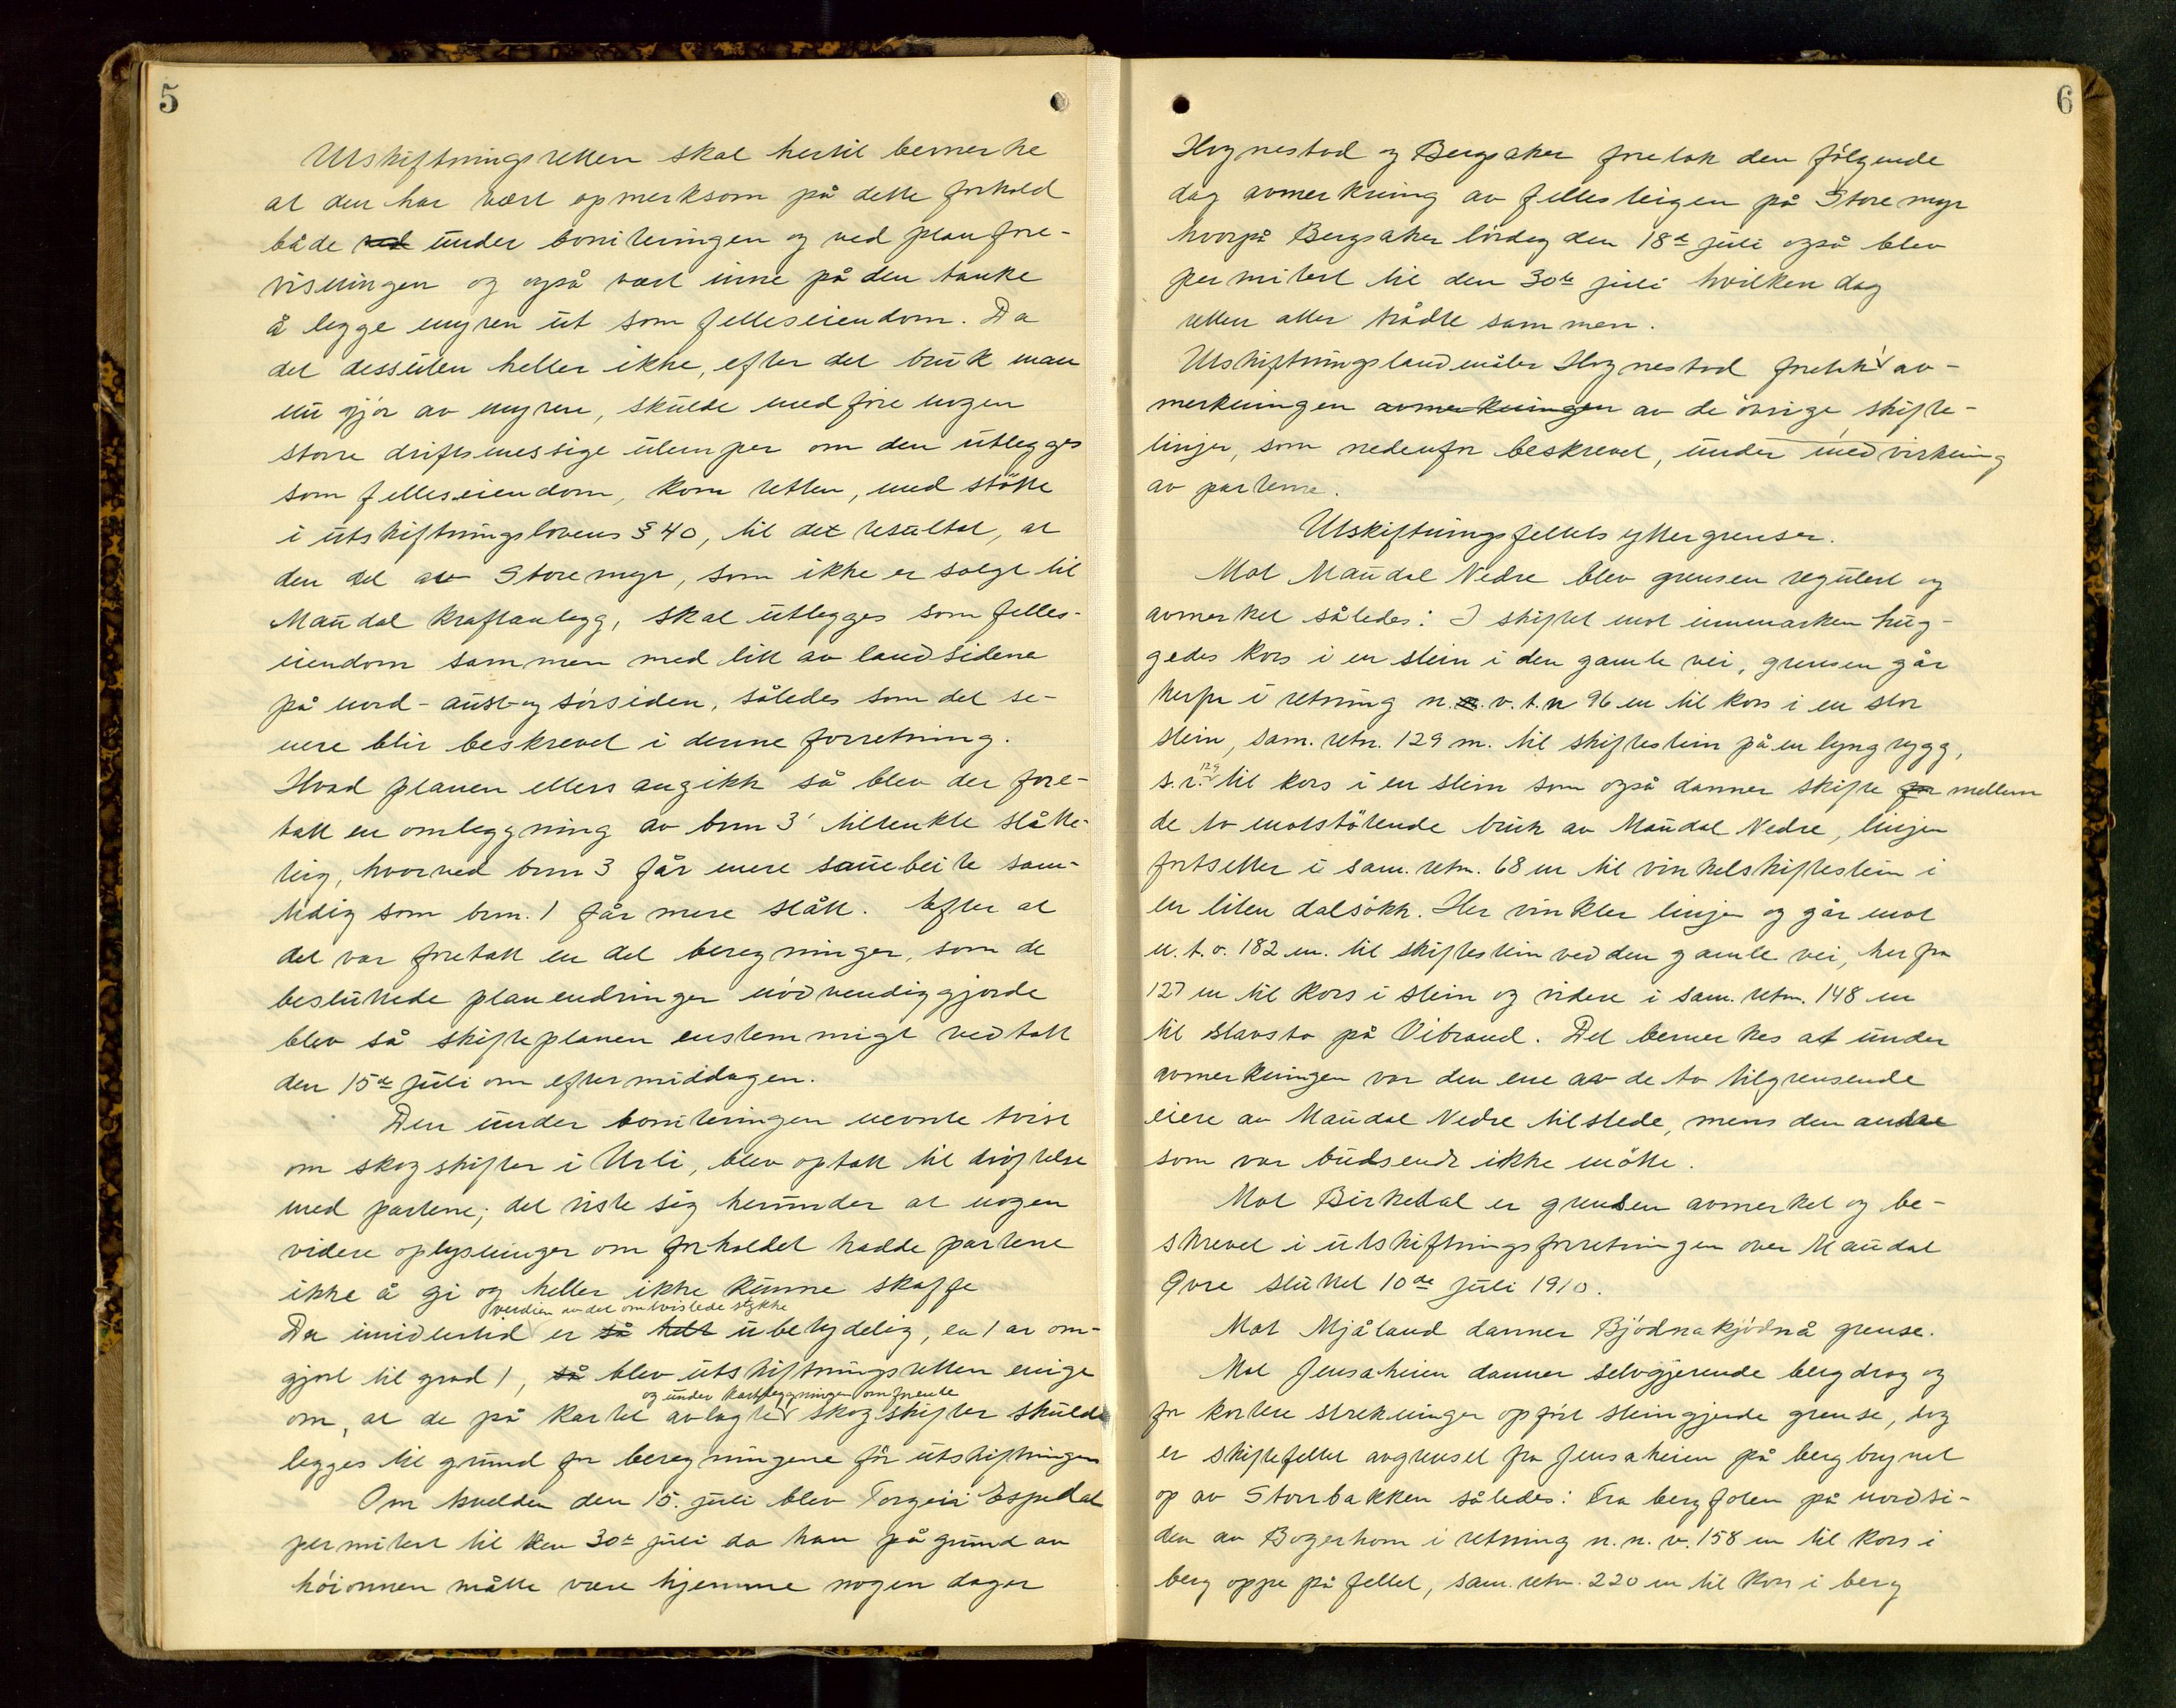 5
Utskiftningsretten skal hertil bemerke
at den har vært opmerksom på dette forhold
både ved under boniteringen og ved planfore-
visningen og også vært inne på den tanke
å legge myren ut som felleseiendom. Da
det dessuten heller ikke, efter det bruk man
nu gjør av myren, skulde medføre nogen
større driftsmessige ulemper om den utlegges
som felleseiendom, kom retten, med støtte
i utskiftningslovens § 40, til det resultat, at
den del av Storemyr, som ikke er solgt til
Maudal kraftanlegg, skal utlegges som felles-
eiendom sammen med litt av landsidene
på nord- aust- og sørsiden, således som det se-
nere blir beskrevet i denne forretning.
Hvad planen ellers angikk så blev der fore-
tatt en omleggning av brnr 3' tiltenkte slåtte-
teig, hvorved brnr 3 får mere sauebeite sam-
tidig som brnr. 1 får mere slått. Efter at
det var foretatt en del beregninger, som de
besluttede planendringer nødvendiggjorde
blev så skifteplanen enstemmigt vedtatt
den 15de juli om eftermiddagen.
Den under boniteringen nevnte tvist
om skogskifter i Urli, blev optatt til drøftelse
med partene; det viste sig herunder at nogen
videre oplysninger om forholdet hadde partene
ikke å gi og heller ikke kunne skaffe
verdien av det omtvistede stykke
Da imidlertid er så helt ubetydelig, ca 1 ar om-
gjort til grad 1, så blev utskiftningsretten enige
og under kartleggningen omforente
om, at de på kartet avlagte skogskifter skulde
legges til grund for beregningene for utskiftningen
Om kvelden den 15. juli blev Torgeir Espedal
permitert til den 30te juli da han på grund av
høionnen måtte være hjemme nogen dager
6
Hognestad og Bergsaker foretok den følgende
dag avmerkning av fellesteigen på Storemyr
hvorpå Bergsaker lørdag den 18de juli også blev
permitert til den 30te juli hvilken dag
retten atter trådte sammen.
Utskiftningslandmåler Hognestad foretok av-
merkningen avmerkningen av de øvrige skifte-
linjer, som nedenfor beskrevet, under medvirkning
av partene.
Utskiftningsfeltets yttergrenser.
Mot Maudal Nedre blev grensen regulert og
avmerket således: I skiftet mot innmarken hug-
gedes kors i en stein i den gamle vei, grensen går
herfra i retning n. v. t. n 96 m til kors i en stor
stein, sam. retn. 129 m. til skiftestein på en lyngrygg,
129
s. r. til kors i en stein som også danner skifte for mellem
de to motstøtende bruk av Maudal Nedre, linjen
fortsetter i sam. retn. 68 m til vinkelskiftestein i
en liten dalsøkk. Her vinkler linjen og går mot
n. t. o. 182 m. til skiftestein ved den gamle vei, herfra
127 m til kors i stein og videre i sam. retn. 148 m
til stavsto på Vibrand. Det bemerkes at under
avmerkningen var den ene av de to tilgrensende
eiere av Maudal Nedre tilstede, mens den andre
som var budsendt ikke møtte.
Mot Birkedal er grensen avmerket og be-
skrevet i utskiftningsforretningen over Maudal
Øvre sluttet 10de juli 1910.
Mot Mjåland danner Bjødnakjødnå grense.
Mot Jensaheien danner selvgjerende bergdrag og
for kortere strekninger opført steingjerde grense, dog
er skiftefeltet avgrenset fra Jensaheien på bergbrynet
op av Storrbakken således: Fra bergfoten på nordsi-
den av Bogerhom i retning n. n. v. 158 m til kors i
berg oppe på fjellet, sam. retn. 220 m til kors i berg